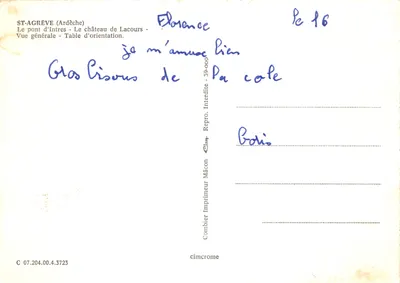 ST-AGRÈVE (Ardèche)
Le pont d'Intres - Le château de Lacours -
Vue générale - Table d'orientation.
Florence
le 16
je m'amuse bien
Gros bisous de la colo
Boris
Combier Imprimeur Mâcon
Repro. Interdite - 39-000
cimcrome
C 07.204.00.4.3723